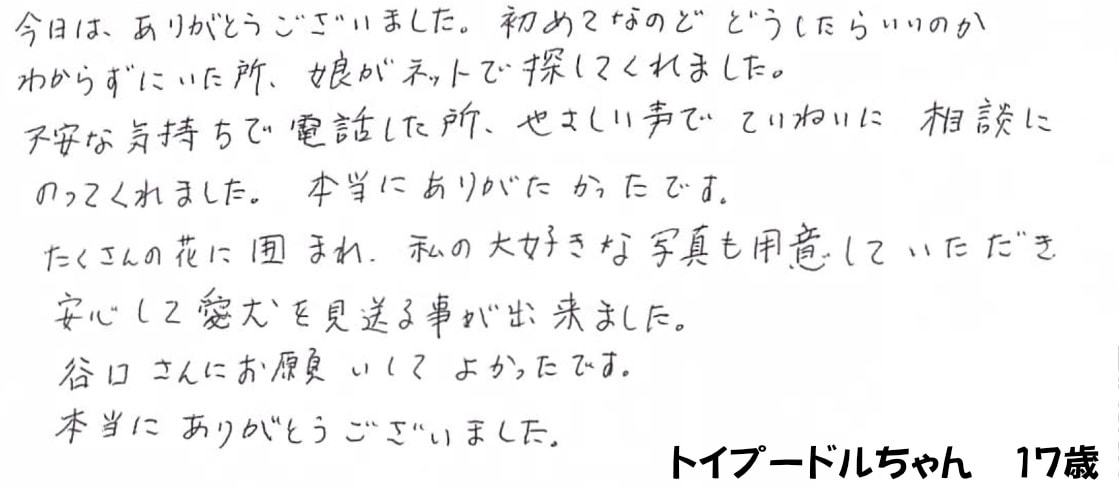 今日は、ありがとうございました。初めてなのど どうしたらいいのか
わからずにいた所、娘がネットで探してくれました。
不安な気持ちで電話した所、やさしい声で ていねいに 相談に
のってくれました。 本当にありがたかったです。
たくさんの花に囲まれ、私の大好きな写真も用意していただき
安心して愛犬を見送る事が出来ました。
谷口さんにお願いして よかったです。
本当に ありがとうございました。
トイプードルちゃん 17歳